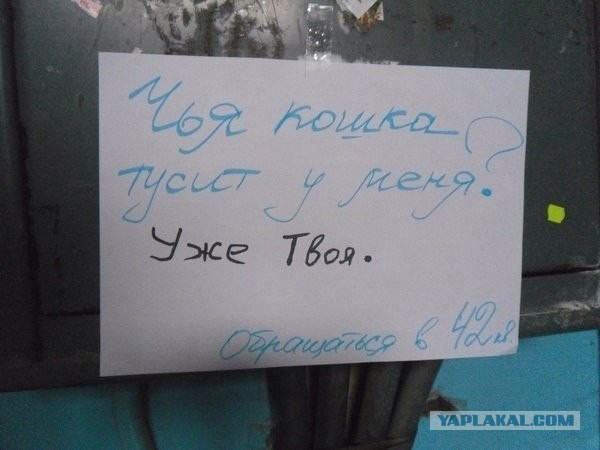 Чья кошка
тусит у меня?
Уже Твоя.
Обращаться в 42 кв.
YAPLAKAL.COM